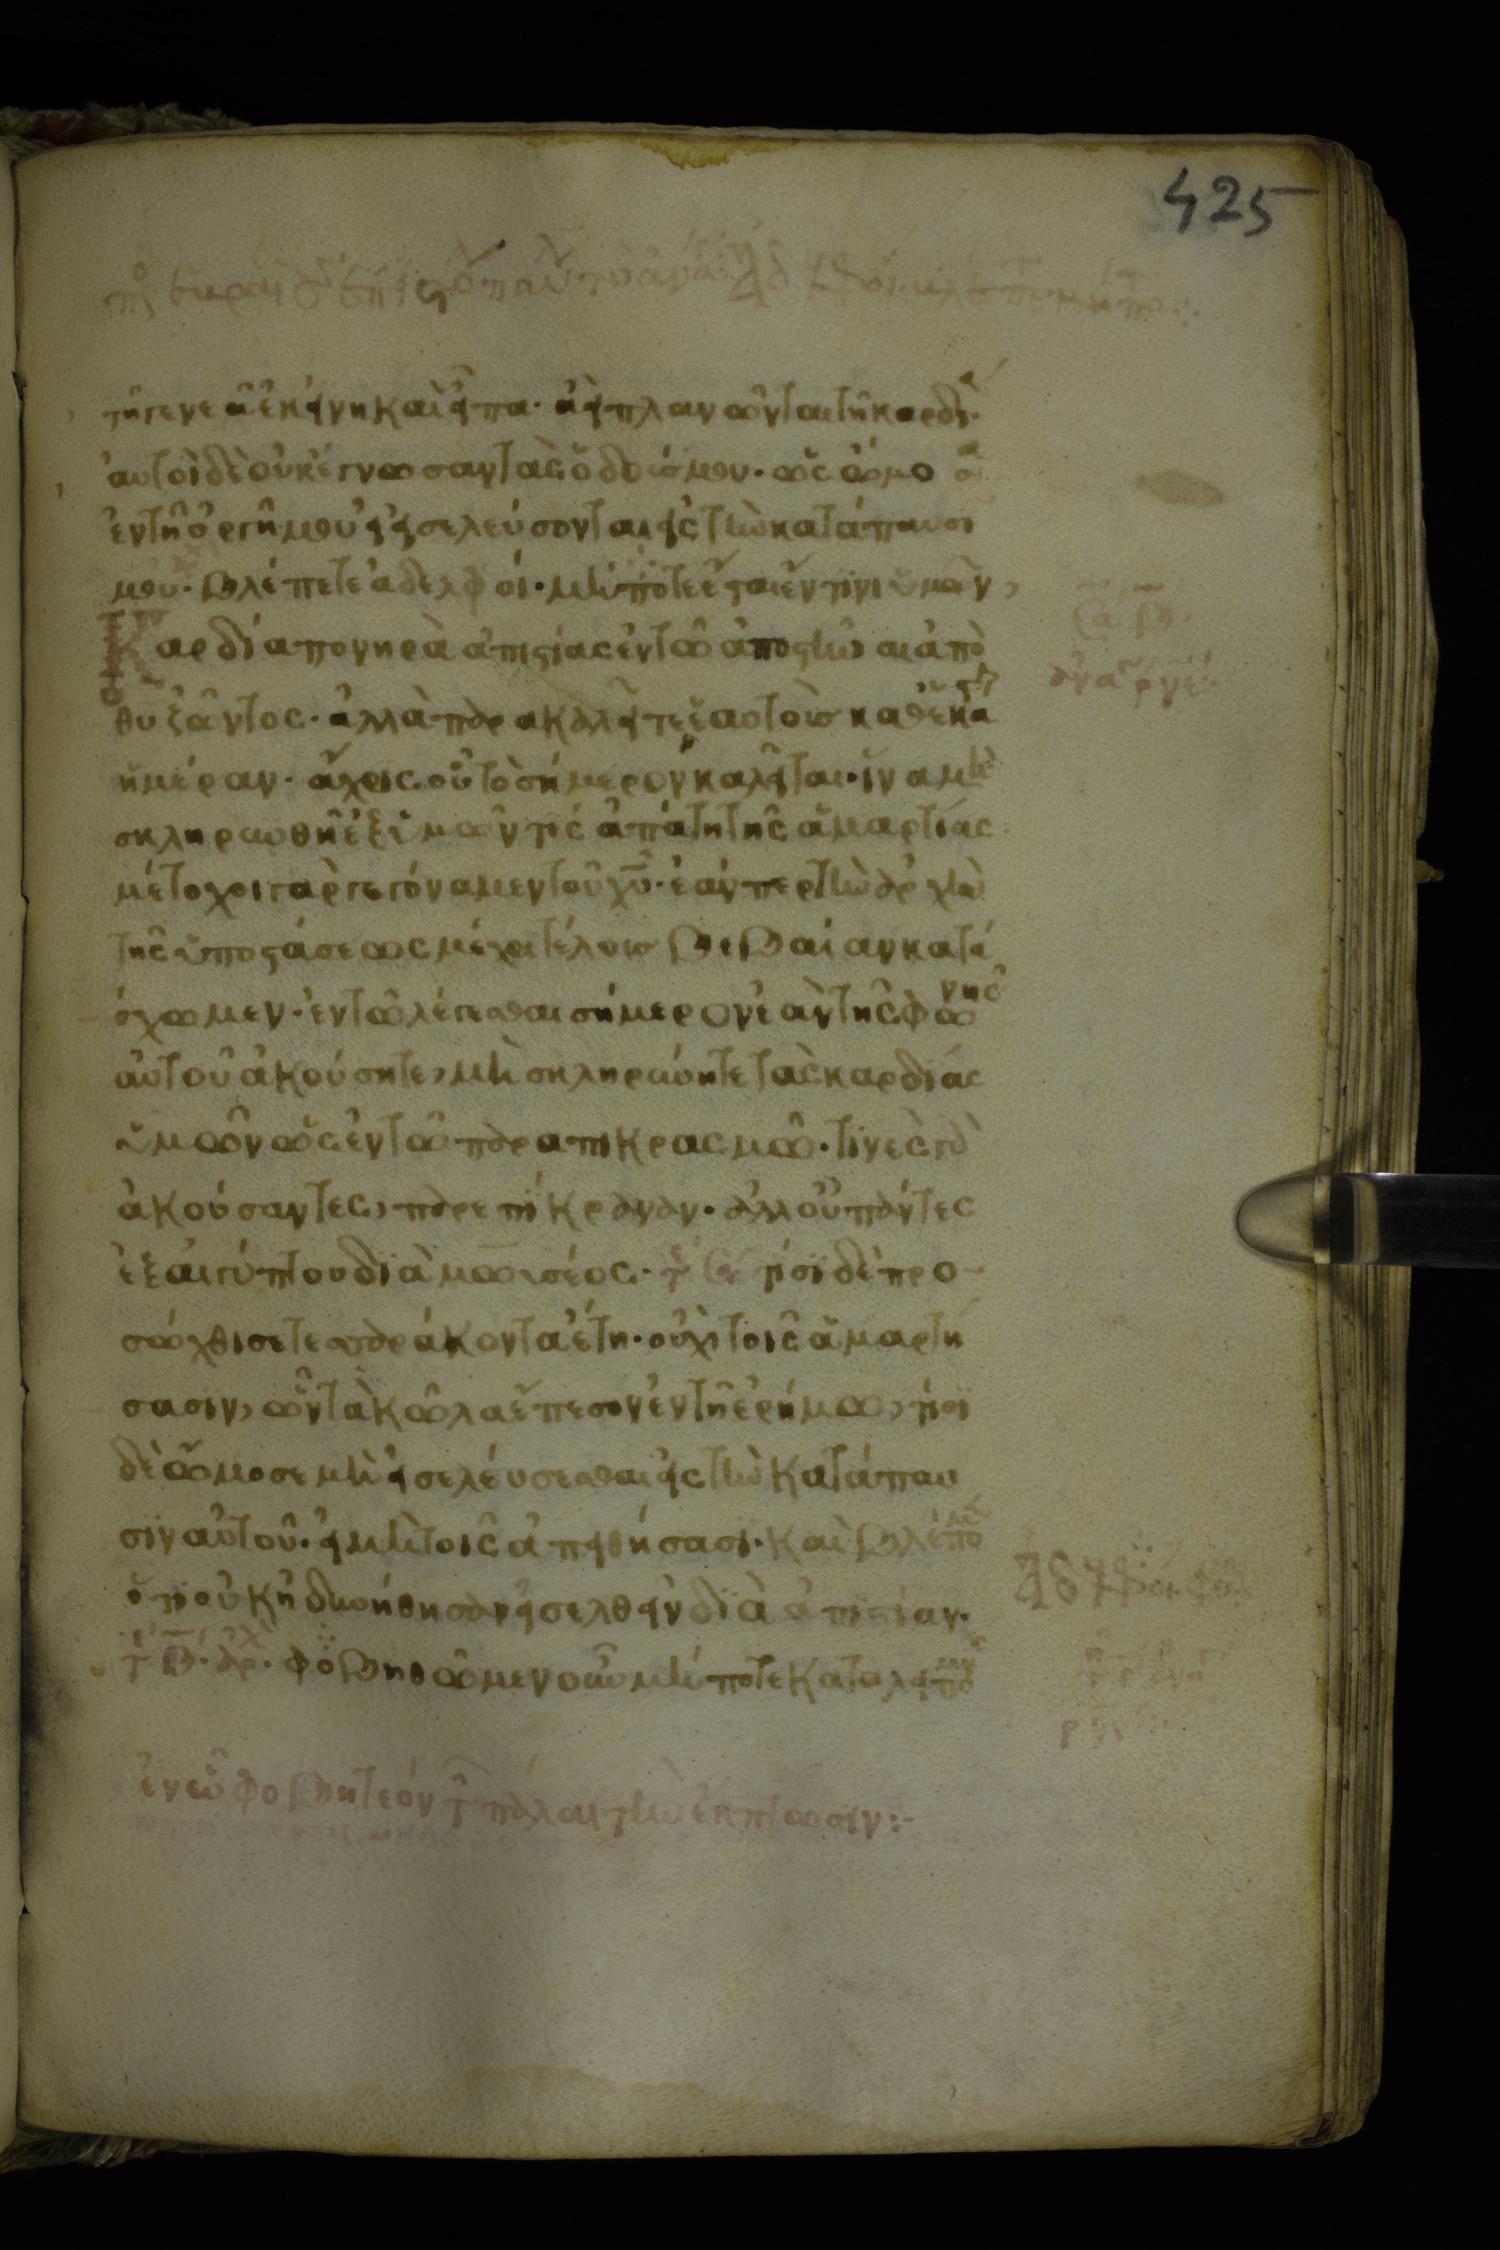 425
τῆ γενεᾶ ἐκείνη καὶ εἶπα· ἀεὶ πλανῶνται τῆ καρδία·
αὐτοὶ δὲ οὐκ ἔγνωσαν τὰς ὁδούς μου· ὡς ὤμοσα
ἐν τῆ ὀργῆ μου εἰ εἰσελεύσονται εἰς τὴν κατάπαυσι
μου· Βλέπετε ἀδελφοί· μήποτε ἔσται ἔν τινι ὑμῶν,
καρδία πονηρὰ ἀπιστίας ἐν τῶ ἀποστῆναι ἀπὸ
θυ ζῶντος· ἀλλὰ παρακαλεῖτε ἑαυτοὺς καθ' ἑκάστην
ἡμέραν· ἄχρις οὗ τὸ σήμερον καλεῖται· ἵνα μὴ
σκληρωθῆ ἐξ ὑμῶν τίς ἀπάτη τῆς ἁμαρτίας
μέτοχοι γὰρ γεγόναμεν τοῦ χυ· ἐάνπερ τὴν ἀρχὴν
τῆς ὑποστάσεως μέχρι τέλους βεβαίαν κατά
σχωμεν· ἐν τῶ λέγεσθαι σήμερον ἐὰν τῆς φωνῆς
αὐτοῦ ἀκούσητε, μὴ σκληρύνητε τὰς καρδίας
ὑμῶν ὡς ἐν τῶ παραπικρασμῶ· τινὲς γὰρ
ἀκούσαντες, παρεπίκραναν· ἀλλ' οὐ πάντες
ἐξ αἰγύπτου διὰ μωυσέος· τίσι δὲ προ
σώχθισε τεσσαράκοντα ἔτη· οὐχὶ τοῖς ἁμαρτή
σασιν, ὧν τὰ κῶλα ἔπεσον ἐν τῆ ἐρήμω, τίσι
δὲ ὤμοσε μὴ εἰσελεύσεσθαι εἰς τὴν κατάπαυ
σιν αὐτοῦ· εἰ μὴ τοῖς ἀπειθήσασι· καὶ βλέπομεν
ὅτι οὐκ ἠδυνήθησαν εἰσελθεῖν δι' ἀπιστίαν·
φοβηθῶμεν οὖν μήποτε καταλειπομένης
ἐν ᾧ φοβητέον τ πάλαι τὴν ἔκπτωσιν:·